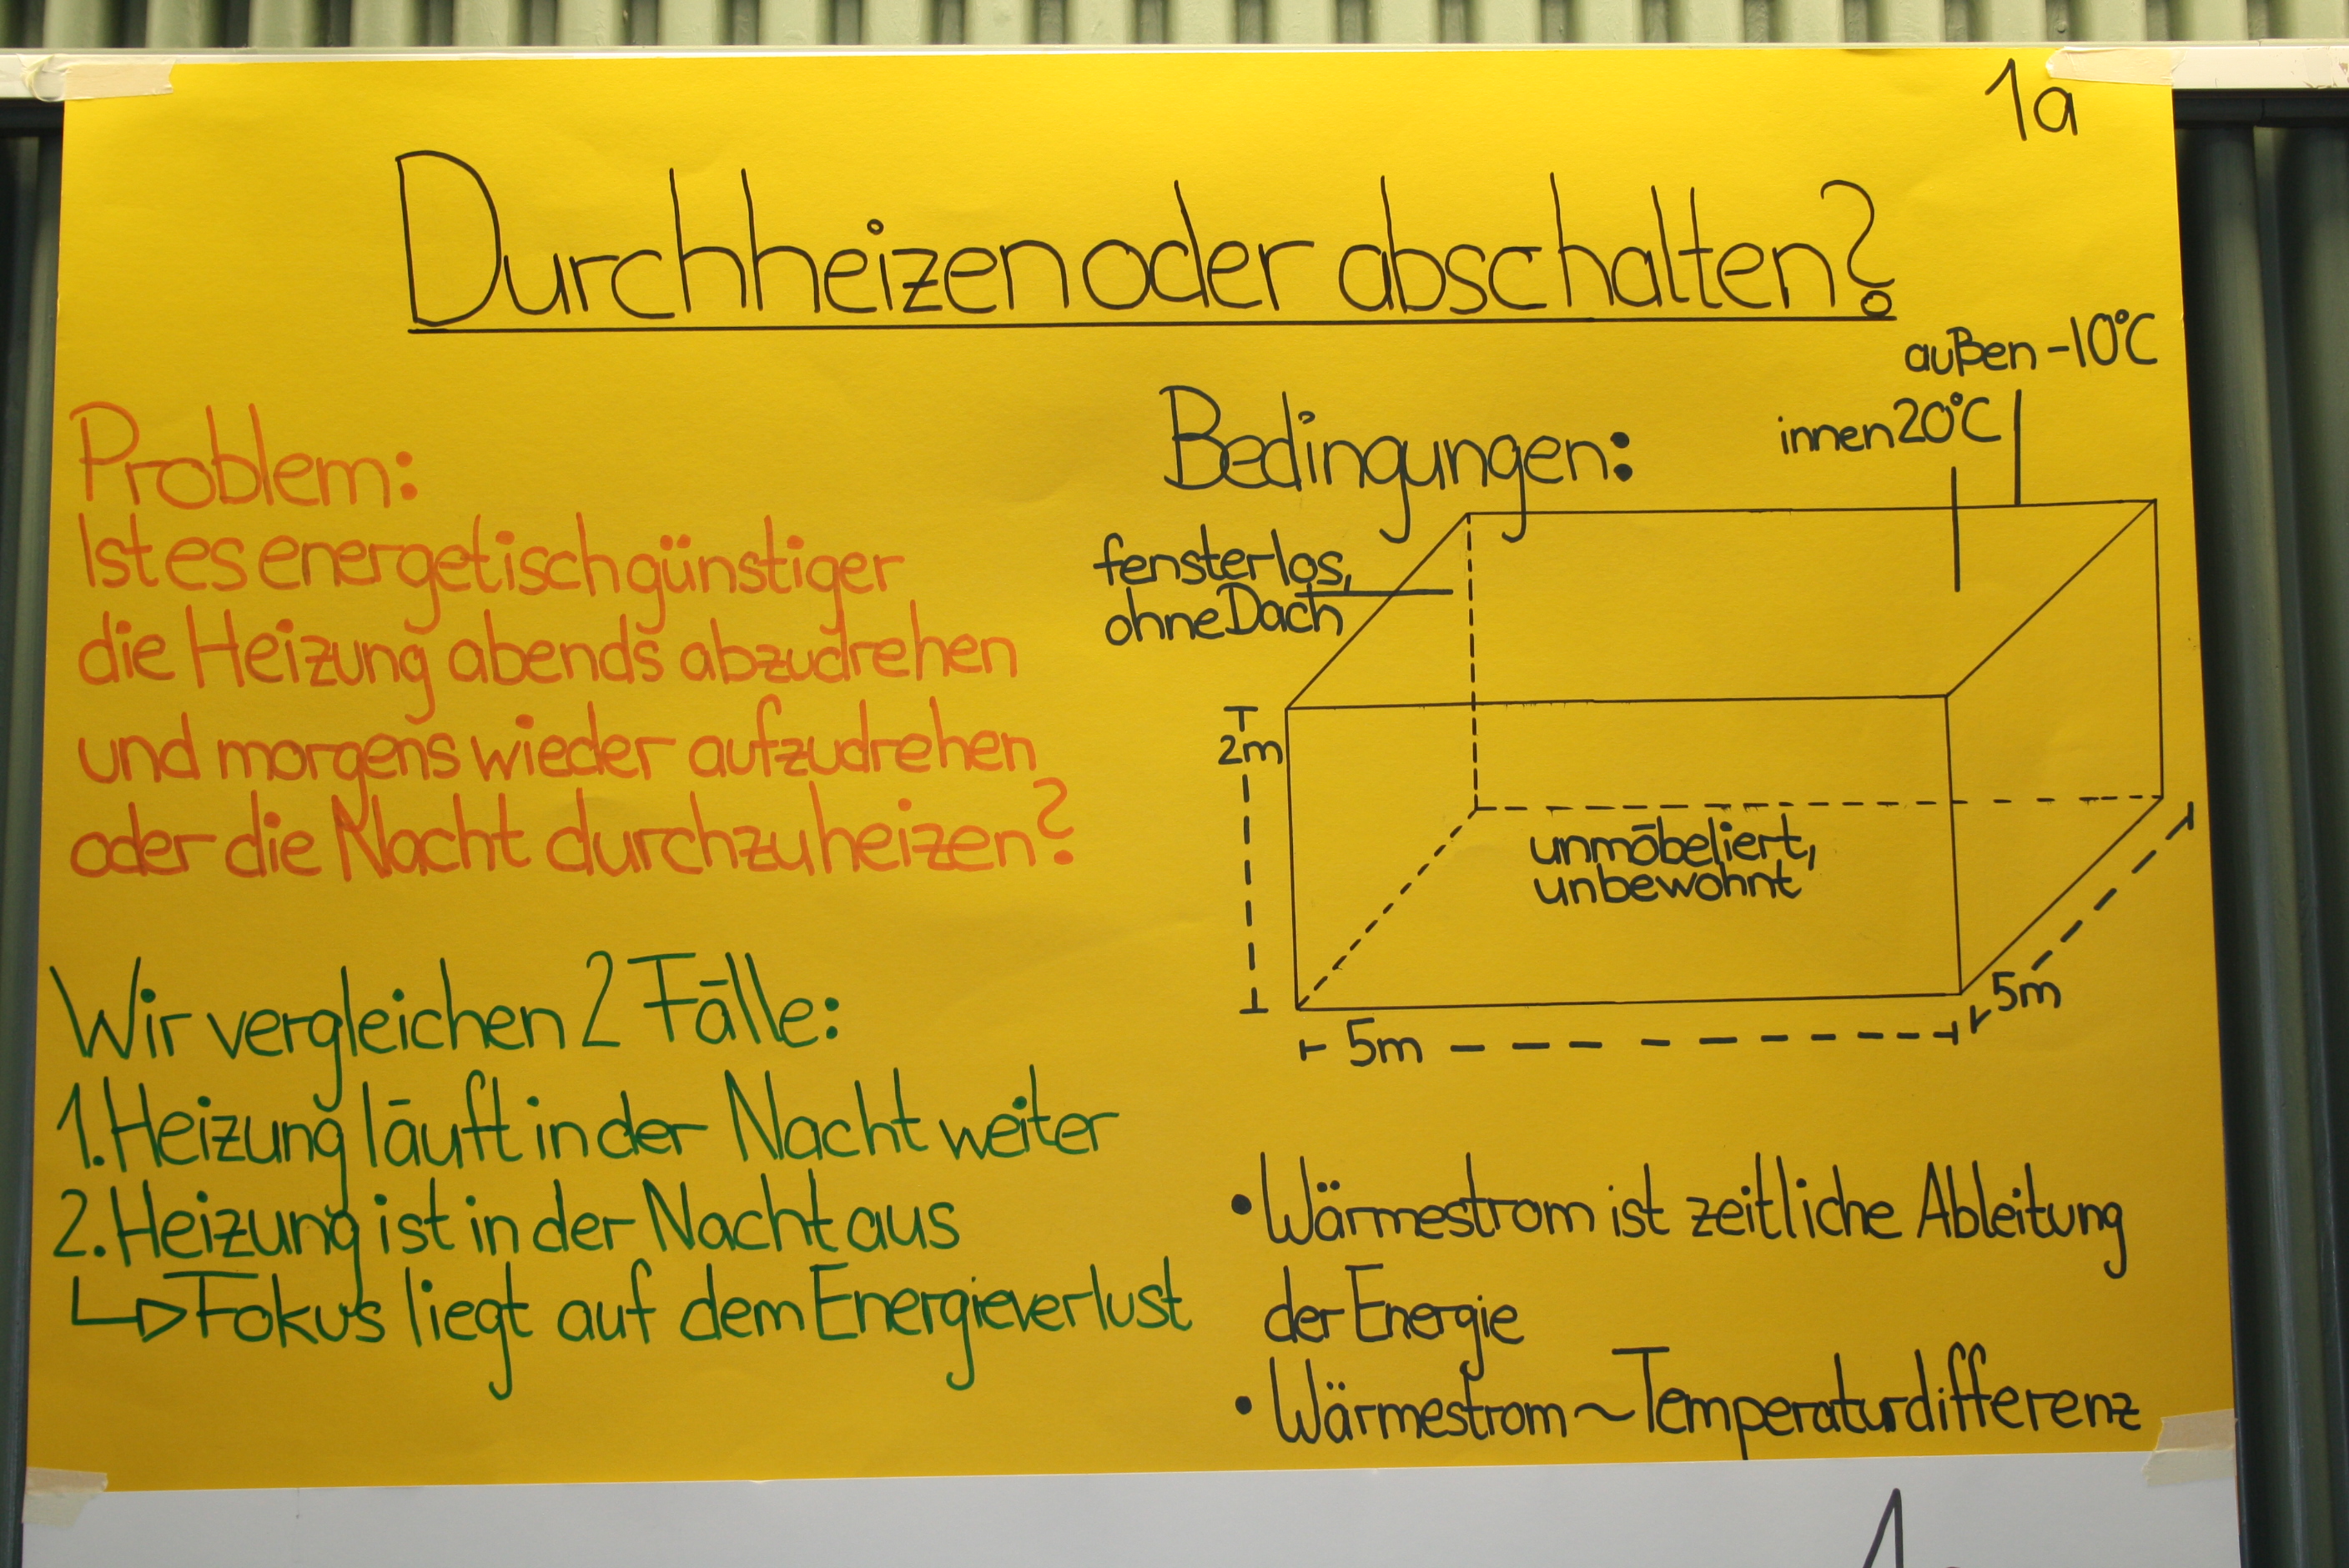 1a
Durchheizen oder abschalten?
Problem:
Ist es energetisch günstiger
die Heizung abends abzudrehen
und morgens wieder aufzudrehen
oder die Nacht durchzuheizen?
Wir vergleichen 2 Fälle:
1. Heizung läuft in der Nacht weiter
2. Heizung ist in der Nacht aus
↳ Fokus liegt auf dem Energieverlust
Bedingungen:
außen -10°C
innen 20°C
fensterlos,
ohne Dach
2m
unmöbeliert,
unbewohnt
5m
5m
• Wärmestrom ist zeitliche Ableitung
der Energie
• Wärmestrom ~ Temperaturdifferenz